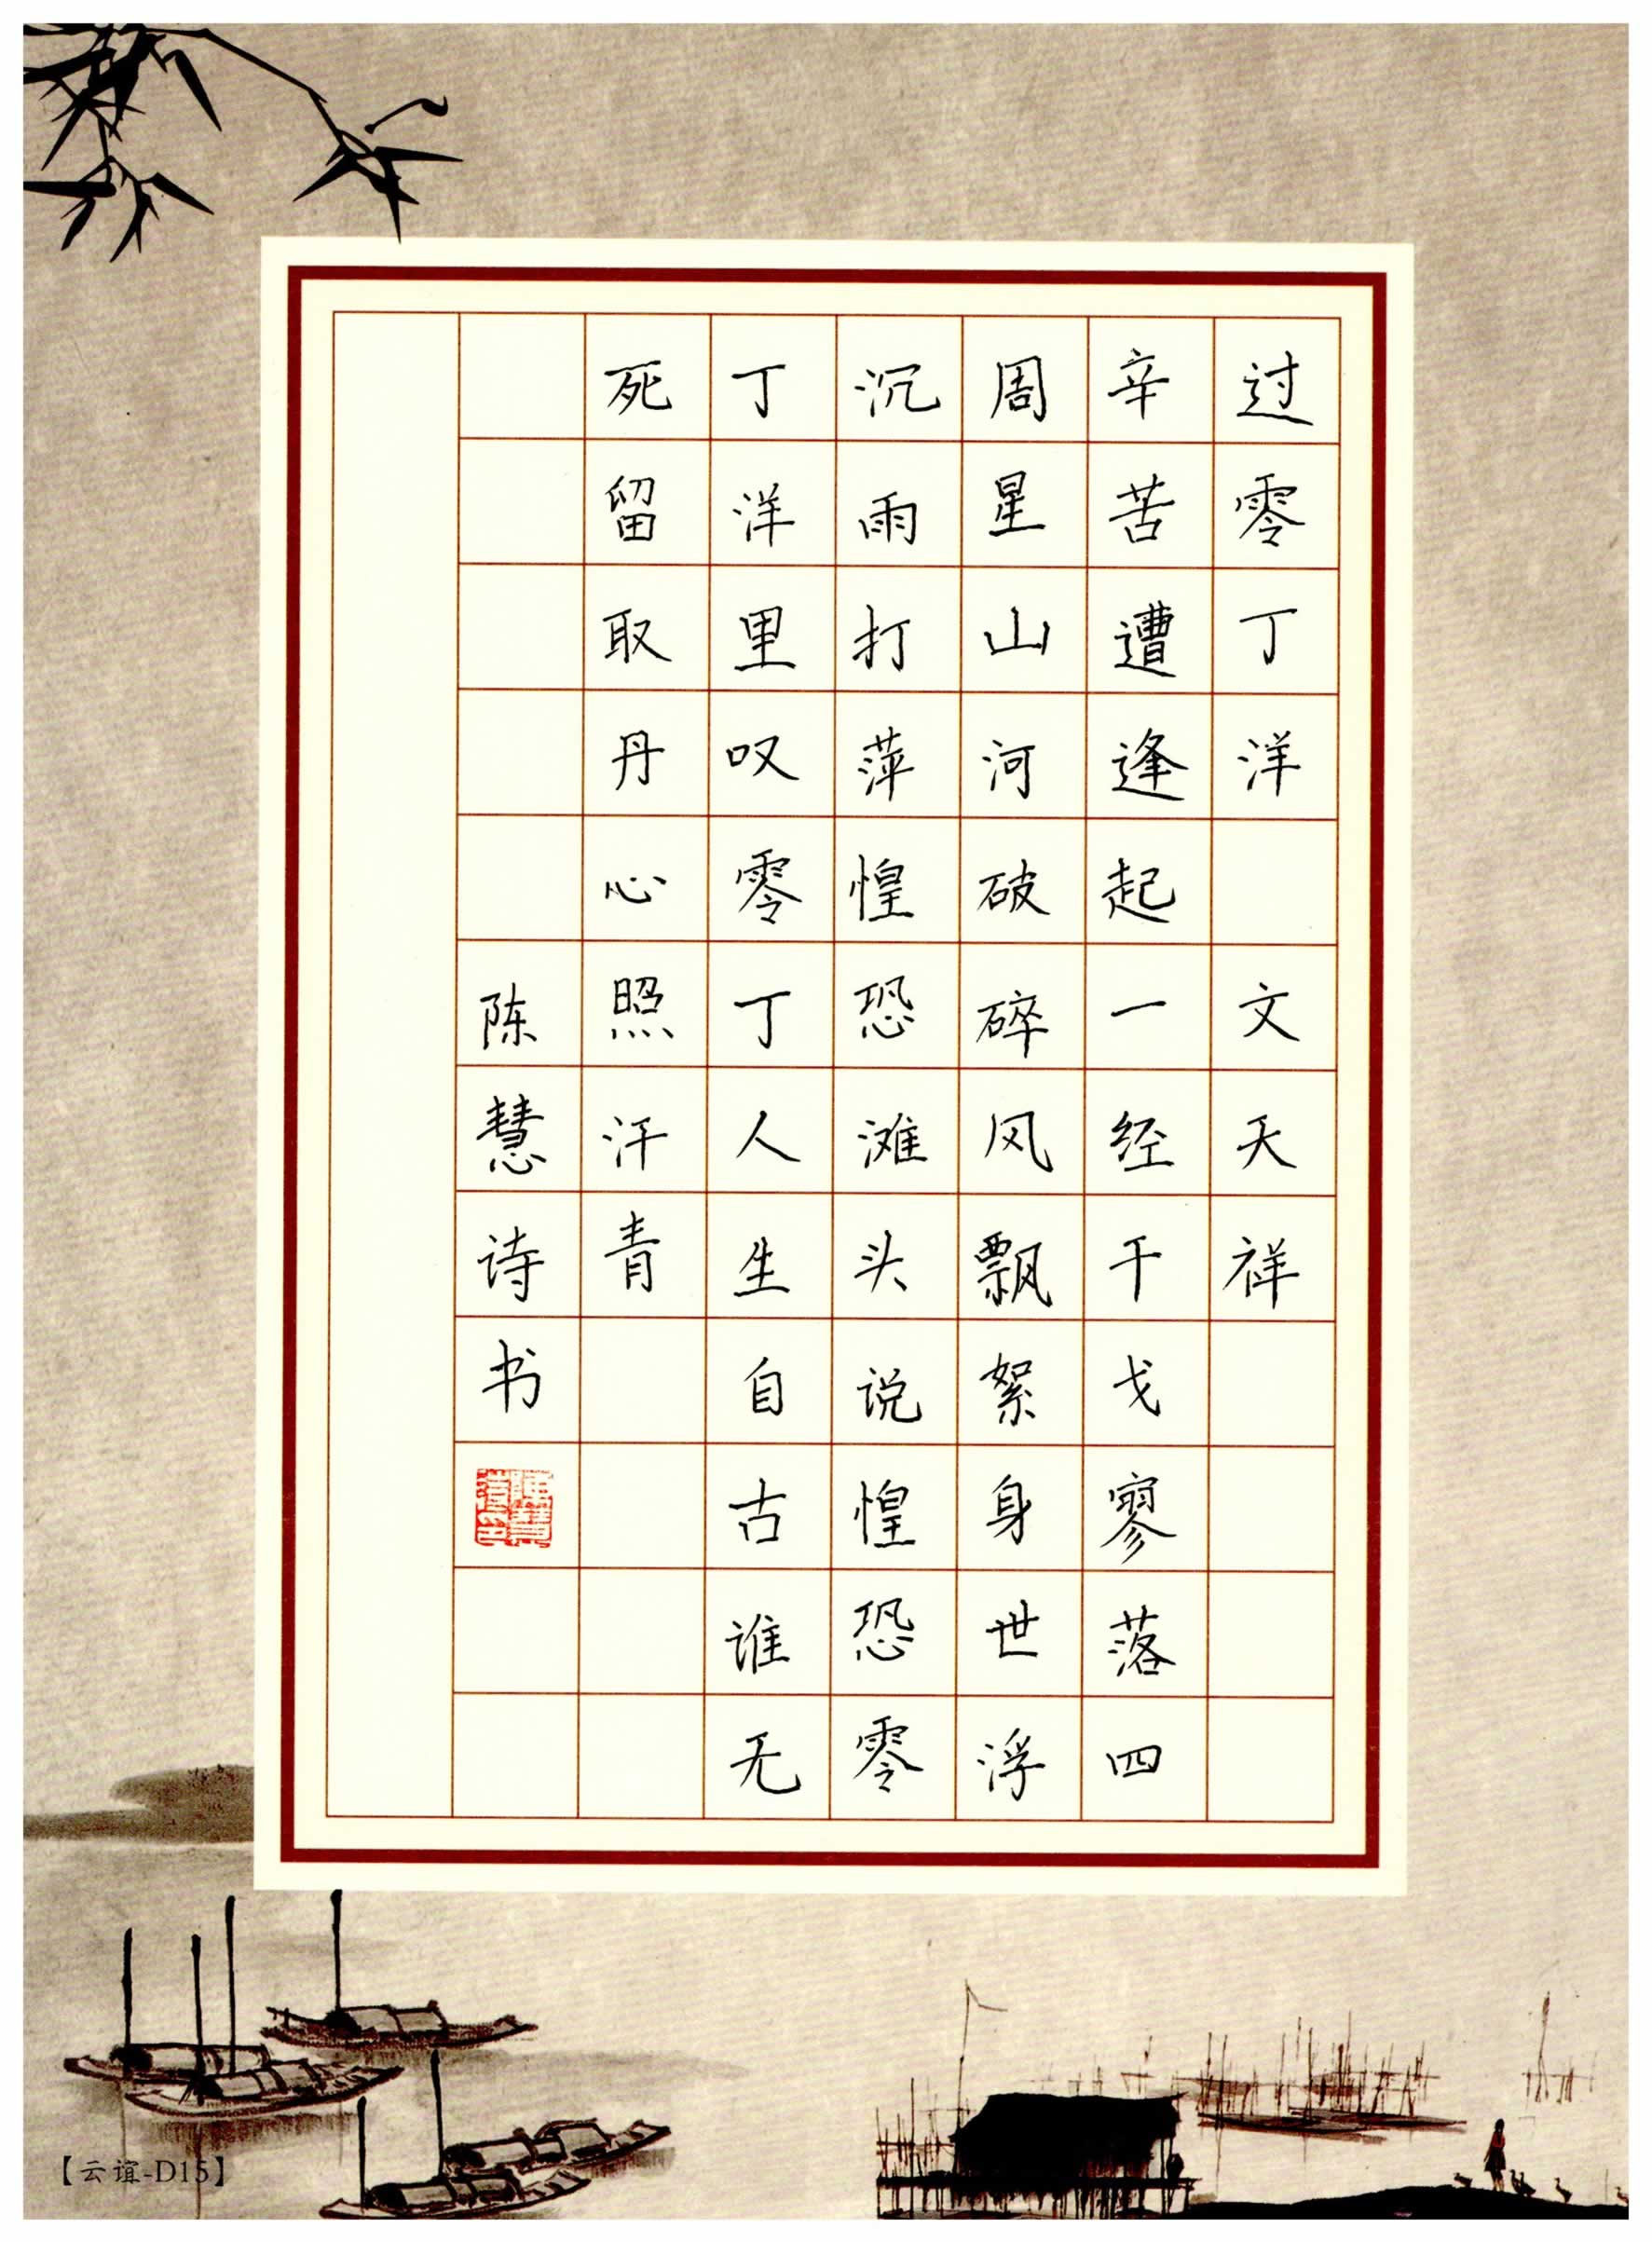 过零丁洋 文天祥
辛苦遭逢起一经干戈寥落四
周星山河破碎风飘絮身世浮
沉雨打萍惶恐滩头说惶恐零
丁洋里叹零丁人生自古谁无
死留取丹心照汗青
陈慧诗书
【云谊-D15】